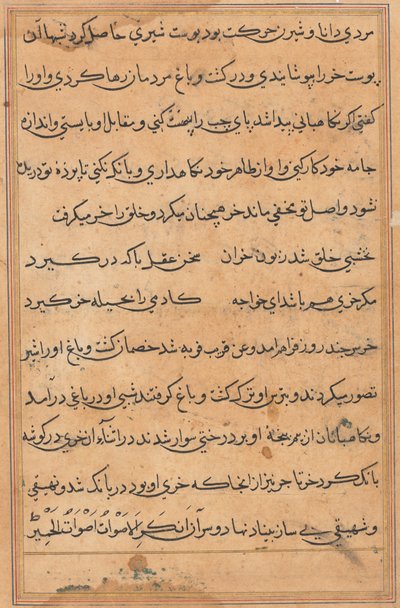 مردی دانا و شیرزن خر کت بود پوست شیری حاصل کرد شبها آن
پوست خر را پوشانیدی و در کشت و باغ مردمان رها کردی و او را
کفتی اگر نکاهبانی پیدا شد پای چپ را کنی و مقابل او بایستی و اندازه
جامه خود کار کنی و آواز ظاهر خود نکاهداری و بانک نکنی تا پرده تو دریده
نشود و اصل تو مخفی ماند خر همچنان میکرد و خلق را خر میکرفت
نخشبی خلق شد زبون خران سخن عقل با که در کیرد
مکر خری هم باشد ای خواجه کادمی را بحیله خر کیرد
خر چند روز فراهم آمد و عن قریب فربه شد خصمان کشت و باغ او را شیر
تصور میکردند و بترس او ترک کشت و باغ کرفتند شبی او در باغی در آمد
و نکاهبانان از بیم او بر درختی سوار شدند در اثناء آن خری در کوشه
بانک کرد خر تاجر نیز از آنجا که خری او بود در بانک شد و نهیقی
و شهیقی بی ساز بنیاد نهاد و سر آن انکر الاصوات اصوات الحمیر